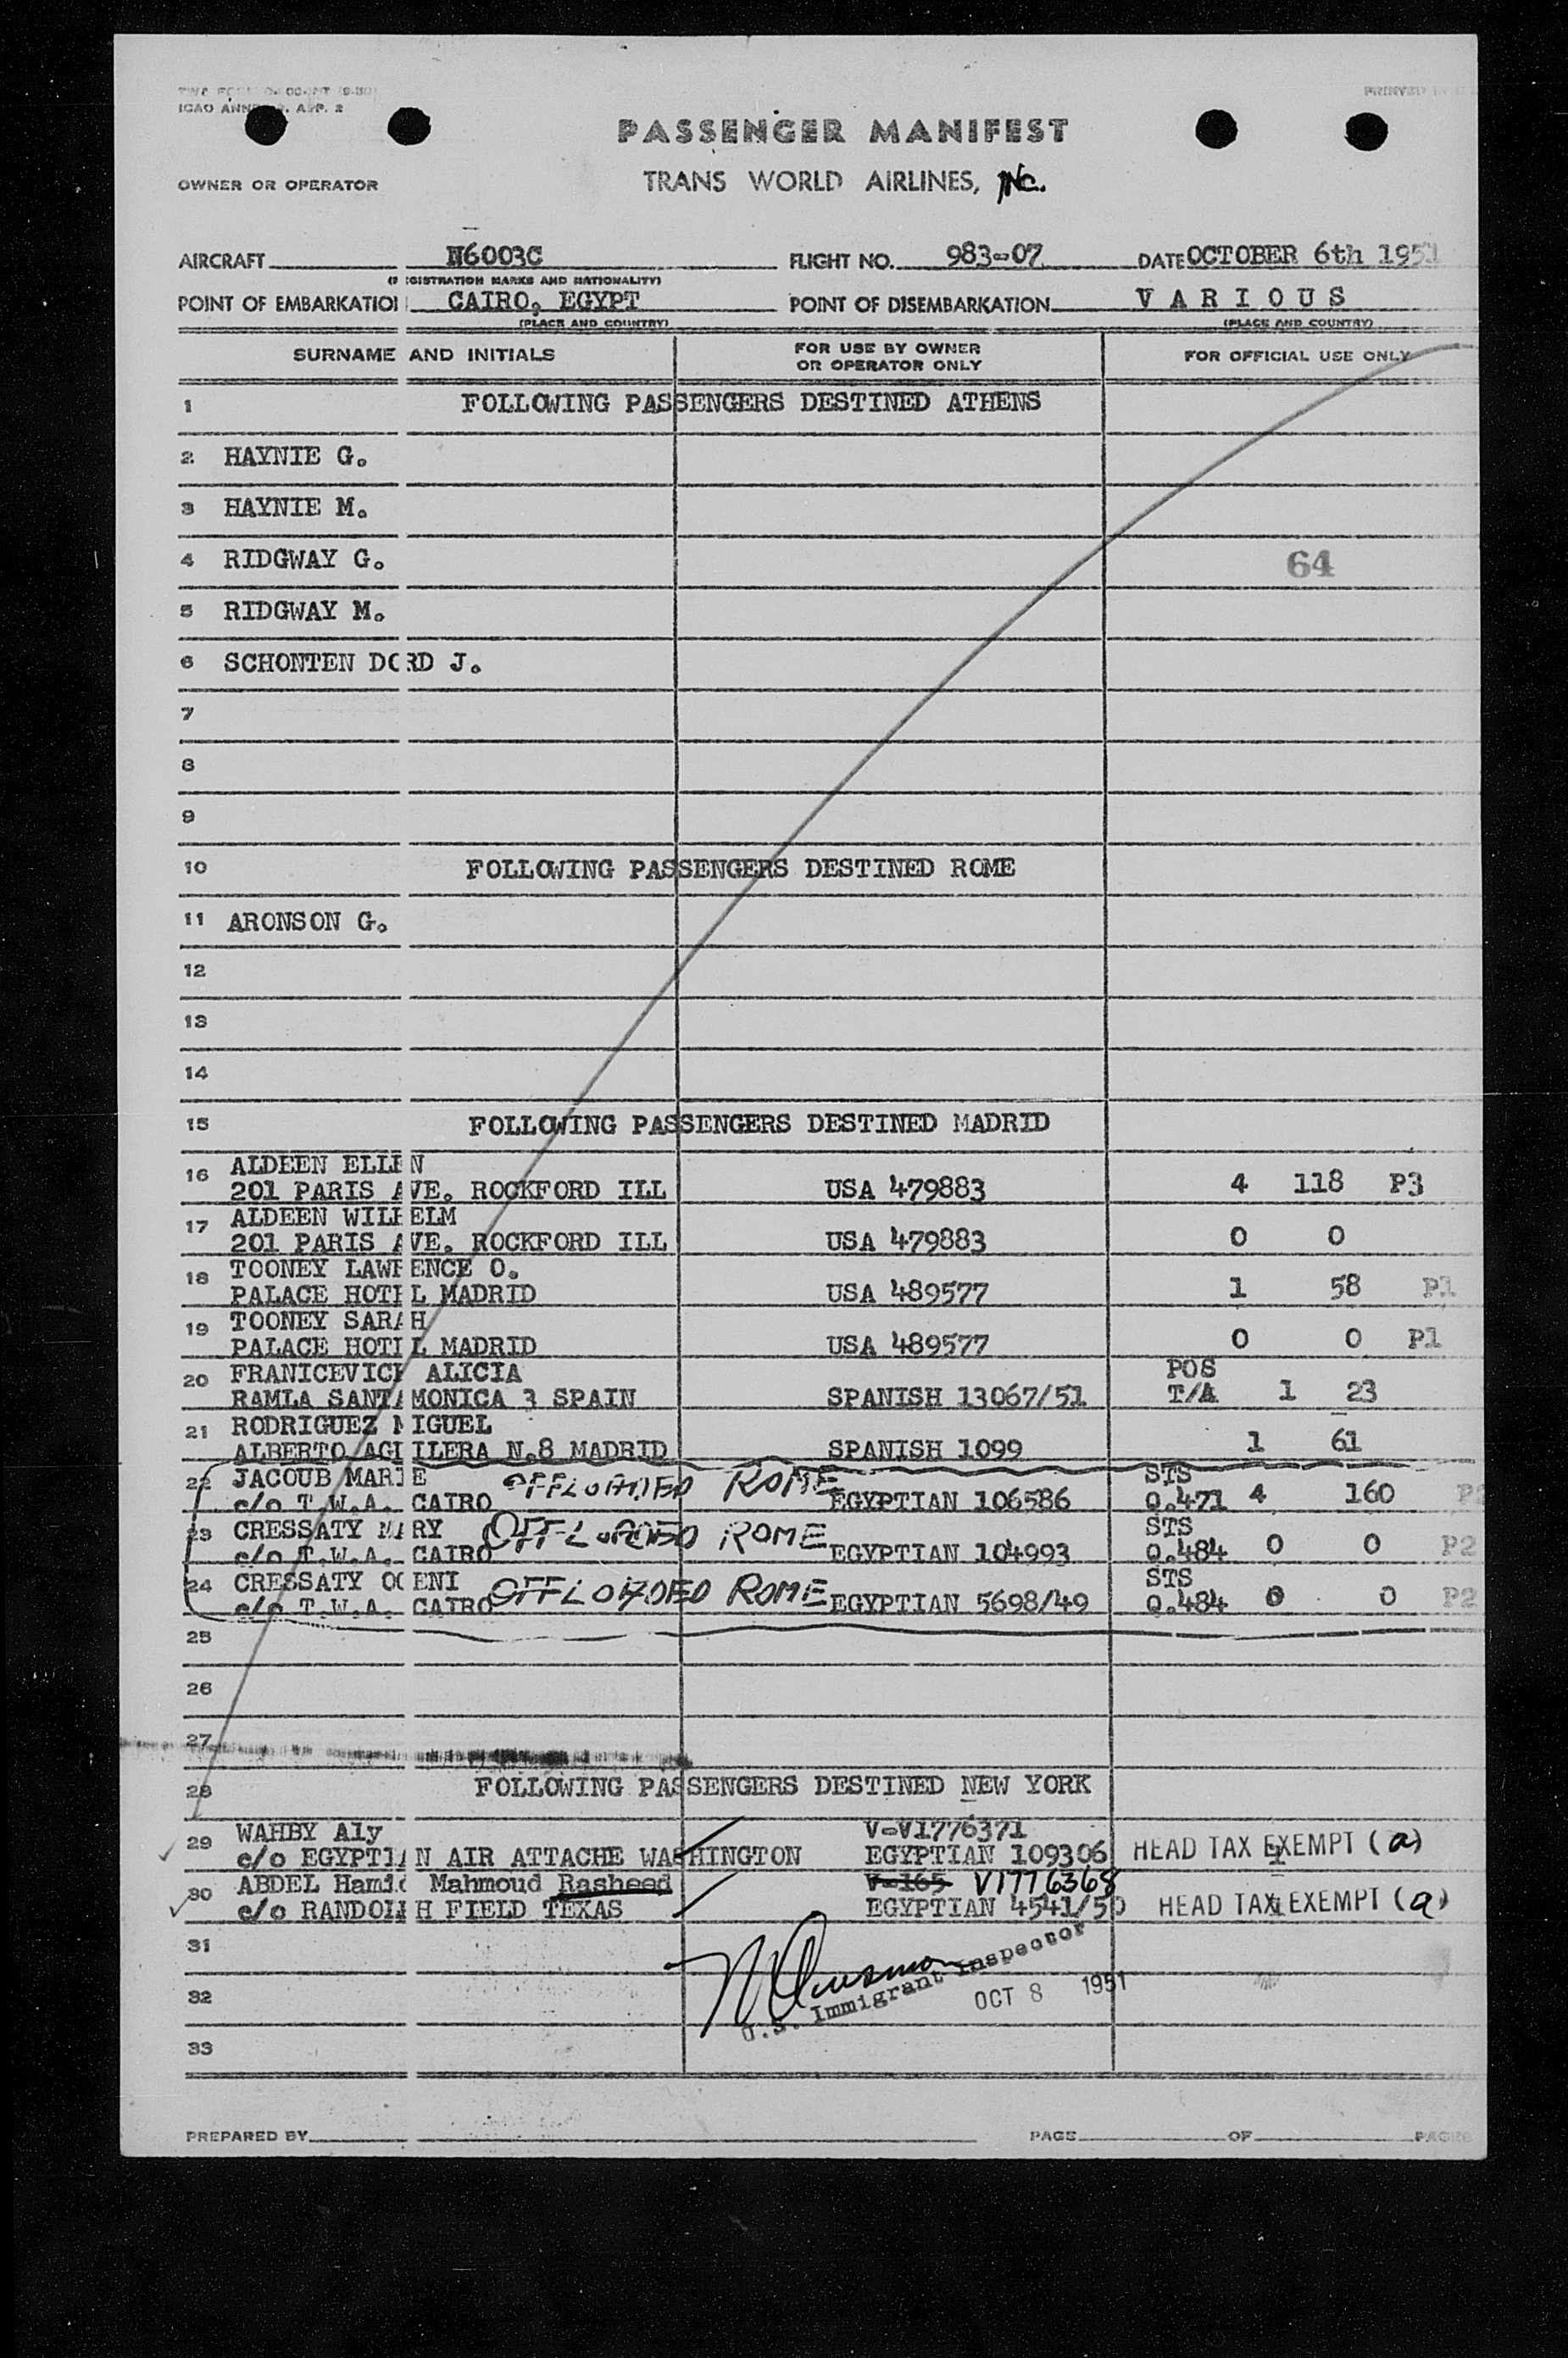 ICAO
PASSENGER MANIFEST
OWNER OR OPERATOR TRANS WORLD AIRLINES, INC.
AIRCRAFT N6003C FLIGHT NO. 983-07 DATE OCTOBER 6th 1951
(REGISTRATION MARKS AND NATIONALITY)
POINT OF EMBARKATION CAIRO, EGYPT POINT OF DISEMBARKATION VARIOUS
(PLACE AND COUNTRY) (PLACE AND COUNTRY)
SURNAME AND INITIALS FOR USE BY OWNER OR OPERATOR ONLY FOR OFFICIAL USE ONLY
1 FOLLOWING PASSENGERS DESTINED ATHENS
2 HAYNIE G.
3 HAYNIE M.
4 RIDGWAY G. 64
5 RIDGWAY M.
6 SCHONTEN DORD J.
7
8
9
10 FOLLOWING PASSENGERS DESTINED ROME
11 ARONSON G.
12
13
14
15 FOLLOWING PASSENGERS DESTINED MADRID
16 ALDEEN ELLEN
201 PARIS AVE. ROCKFORD ILL USA 479883 4 118 P3
17 ALDEEN WILHELM
201 PARIS AVE. ROCKFORD ILL USA 479883 0 0
18 TOONEY LAWRENCE O.
PALACE HOTEL MADRID USA 489577 1 58 P1
19 TOONEY SARAH
PALACE HOTEL MADRID USA 489577 0 0 P1
20 FRANICEVICH ALICIA POS
RAMLA SANTA MONICA 3 SPAIN SPANISH 13067/51 T/A 1 23
21 RODRIGUEZ MIGUEL
ALBERTO AGUILERA N.8 MADRID SPANISH 1099 1 61
22 JACOUB MARIE OFFLOADED ROME STS
c/o T.W.A. CAIRO EGYPTIAN 106586 Q.471 4 160
23 CRESSATY MARY OFFLOADED ROME STS
c/o T.W.A. CAIRO EGYPTIAN 104993 Q.484 0 0 P2
24 CRESSATY OGENI OFFLOADED ROME STS
c/o T.W.A. CAIRO EGYPTIAN 5698/49 Q.484 0 0 P2
25
26
27
28 FOLLOWING PASSENGERS DESTINED NEW YORK
29 WAHBY Aly V-V1776371
c/o EGYPTIAN AIR ATTACHE WASHINGTON EGYPTIAN 109306 HEAD TAX EXEMPT (a)
30 ABDEL Hamid Mahmoud Rasheed V-165 V1776368
c/o RANDOLPH FIELD TEXAS EGYPTIAN 4541/50 HEAD TAX EXEMPT (a)
31
U.S. Immigrant Inspector
32 OCT 8 1951
33
PREPARED BY PAGE OF PAGES